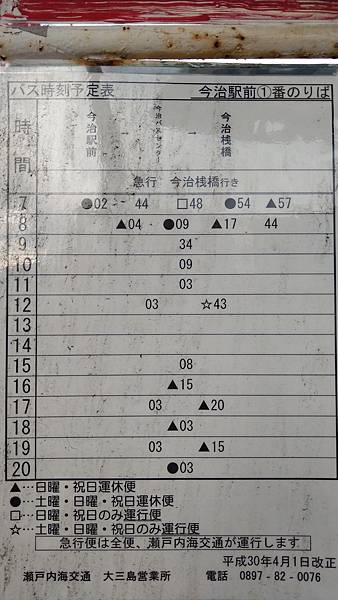 バス時刻予定表 今治駅前①番のりば
時間 今治駅前 → 今治バスセンター → 今治桟橋
急行 今治桟橋行き
7 ●02 44 □48 ●54 ▲57
8 ▲04 ●09 ▲17 44
9 34
10 09
11 03
12 03 ☆43
13
14
15 08
16 ▲15
17 03 ▲20
18 ▲03
19 03 ▲15
20 ●03
▲…日曜・祝日運休便
●…土曜・日曜・祝日運休便
□…日曜・祝日のみ運行便
☆…土曜・日曜・祝日のみ運行便
急行便は全便、瀬戸内海交通が運行します
平成30年4月1日改正
瀬戸内海交通 大三島営業所 電話 0897-82-0076